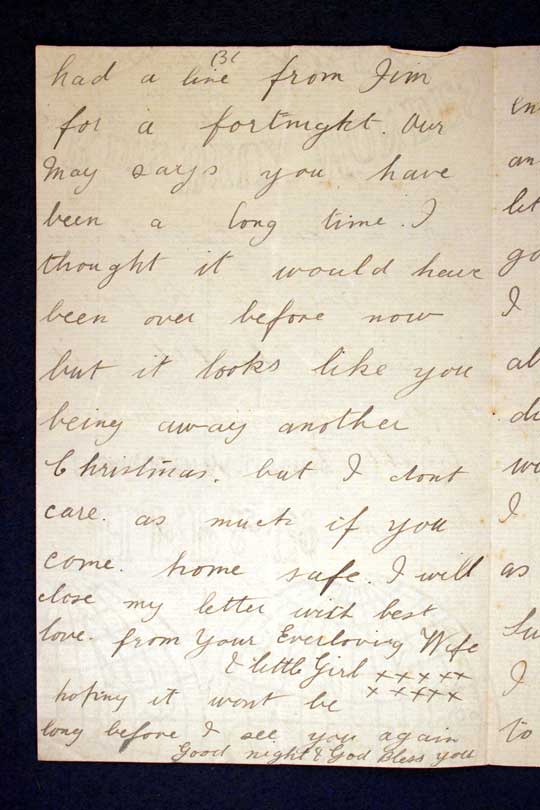 had a line from Jim
for a fortnight. Our
May says you have
been a long time. I
thought it would have
been over before now
but it looks like you
being away another
Christmas. but I dont
care. as much if you
come. home safe. I will
close my letter with best
love. from Your Everloving Wife
& little Girl xxxxx
xxxxx
hoping it wont be
long before I see you again
Good night & God Bless you
an
let
go
I
al
I
as
I
to